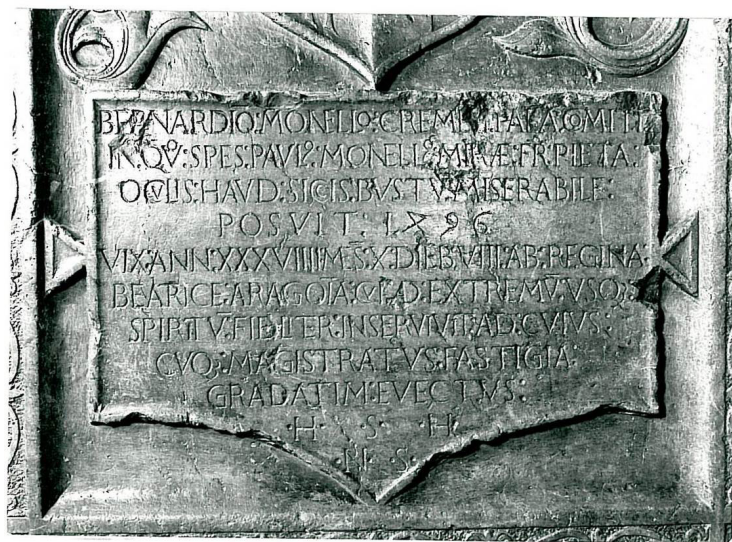 BERNARDIŌ: MONELLº: CREMĒSI: PALA: COMITI
IN. QVº: SPES. PAVLº: MONELLº: MIRÆ: FR: PIETA:
OCVLIS: HAVD: SICIS: BVSTV: MISERABILE:
POSVIT: 1496
VIX: ANN: XXXVIIII: M̅S: X: DIEB: VIIII: AB: REGINA:
BEATRICE: ARAGOĪA: CVI: AD. EXTREMV̄: VSQ3
SPIRITV̄: FIDLTER: INSERVIVIT: AD. CVIVS:
CVOQ3: MAGISTRATVS: FASTIGIA:
GRADATIM: EVECTVS:
H · S · H
N · S ·